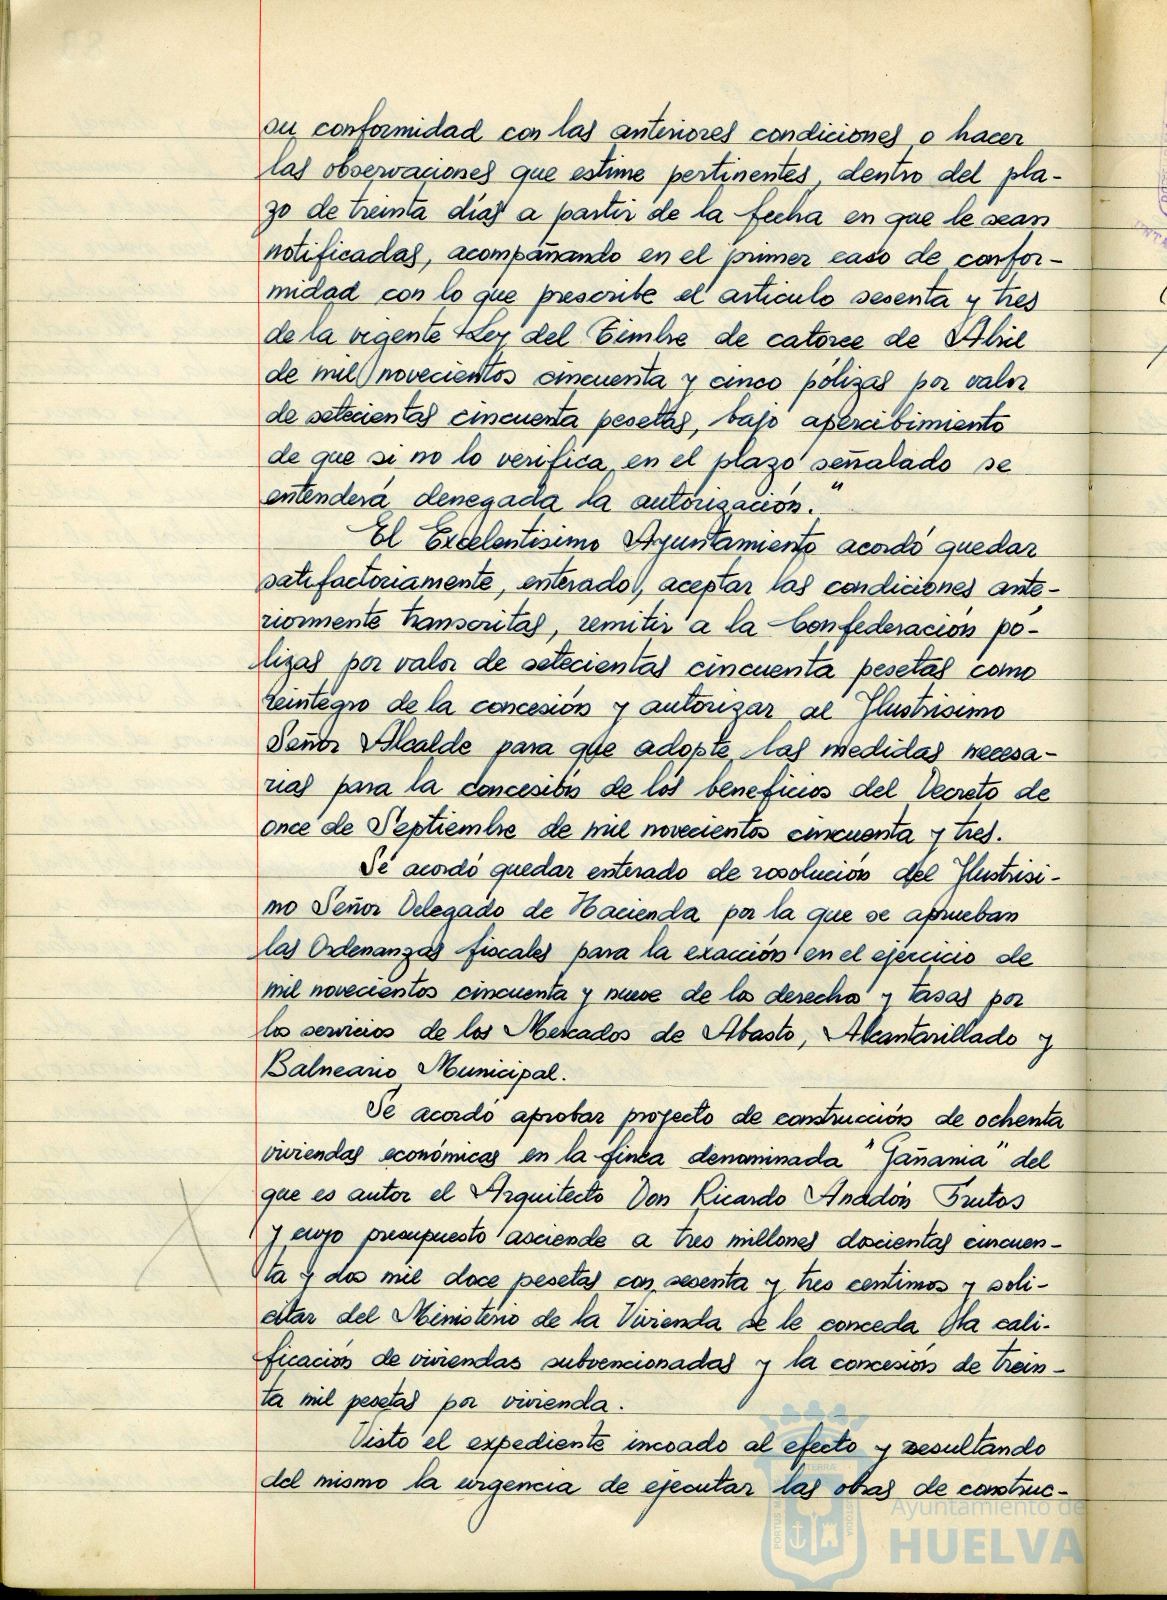 su conformidad con las anteriores condiciones o hacer
las observaciones que estime pertinentes, dentro del pla-
zo de treinta días a partir de la fecha en que le sean
notificadas, acompañando en el primer caso de confor-
midad con lo que prescribe el artículo sesenta y tres
de la vigente Ley del Timbre de catorce de Abril
de mil novecientos cincuenta y cinco pólizas por valor
de setecientas cincuenta pesetas, bajo apercibimiento
de que si no lo verifica en el plazo señalado se
entenderá denegada la autorización."
El Excelentísimo Ayuntamiento acordó quedar
satifactoriamente, enterado, aceptar las condiciones ante-
riormente transcritas, remitir a la Confederación pó-
lizas por valor de setecientas cincuenta pesetas como
reintegro de la concesión y autorizar al Ilustrisimo
Señor Alcalde para que adopte las medidas necesa-
rias para la concesión de los beneficios del Decreto de
once de Septiembre de mil novecientos cincuenta y tres.
Se acordó quedar enterado de resolución del Ilustrisi-
mo Señor Delegado de Hacienda por la que se aprueban
las Ordenanzas fiscales para la exacción en el ejercicio de
mil novecientos cincuenta y nueve de los derechos y tasas por
los servicios de los Mercados de Abasto, Alcantarillado y
Balneario Municipal.
Se acordó aprobar proyecto de construcción de ochenta
viviendas económicas en la finca denominada "Gañania" del
que es autor el Arquitecto Don Ricardo Anadón Frutos
y cuyo presupuesto asciende a tres millones doscientas cincuen-
ta y dos mil doce pesetas con sesenta y tres centimos y soli-
citar del Ministerio de la Vivienda se le conceda la cali-
ficación de viviendas subvencionadas y la concesión de trein-
ta mil pesetas por vivienda.
Visto el expediente incoado al efecto y resultando
del mismo la urgencia de ejecutar las obras de construc-
Ayuntamiento de
HUELVA